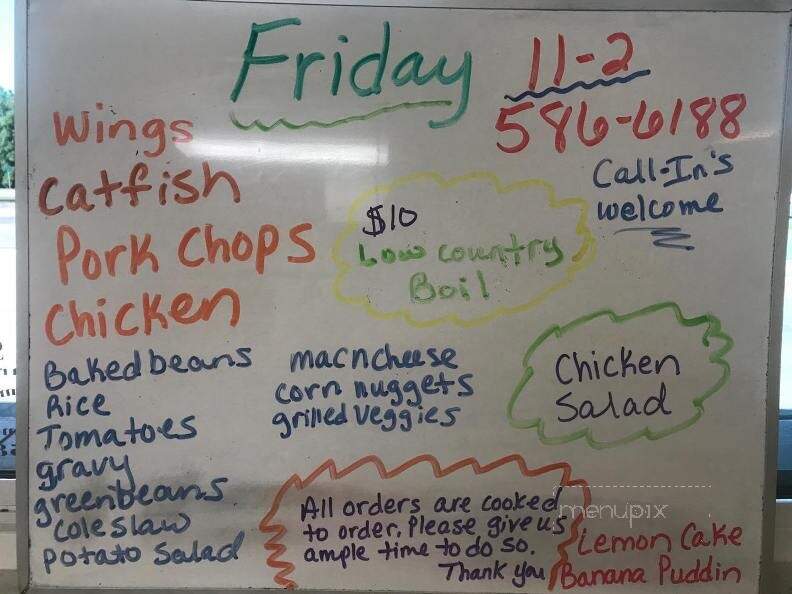 Friday
11-2
586-6188
Call-In's
welcome
Wings
Catfish
Pork Chops
Chicken
$10
Low country
Boil
Baked beans
Rice
Tomatoes
gravy
greenbeans
Coleslaw
Potato Salad
mac n cheese
corn nuggets
grilled Veggies
Chicken
Salad
All orders are cooked
to order. Please give us
ample time to do so.
Thank you
menupix
Lemon Cake
Banana Puddin